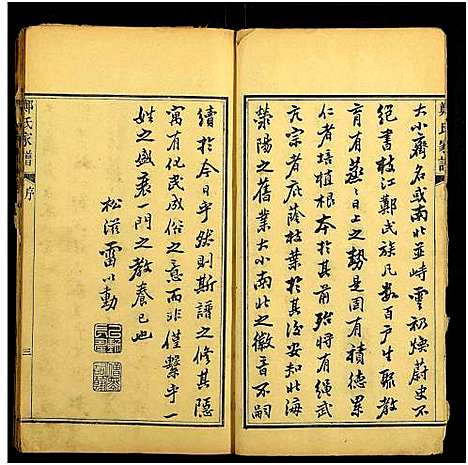 大小齊名或南北並峙雲礽煥蔚史不
絕書枝江鄭氏族凡數百戶生聚教
育有蒸蒸日上之勢是固有積德累
仁者培植根本於其前殆將有繩武
亢宗者庇蔭枝葉於其後安知北海
滎陽之舊業大小南北之徽音不嗣
續於今日乎然則斯譜之修其隱
寓有化民成俗之意而非僅繫乎一
姓之盛衰一門之教養已也
松滋雷以動
鄭氏家譜
序
三